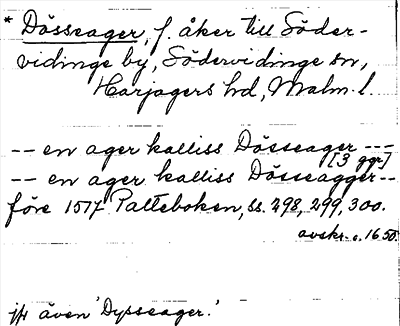 * Dösseager, f. åker till Söder-
vidinge by, Södervidinge sn,
Harjagers hd, Malm. l.
-- en ager kalliss Dösseager ---
[3 ggr]
-- en ager kalliss Dösseagger--
före 1517 Palteboken, ss. 298, 299, 300.
avskr. c. 1650.
jfr även 'Dysseager.'